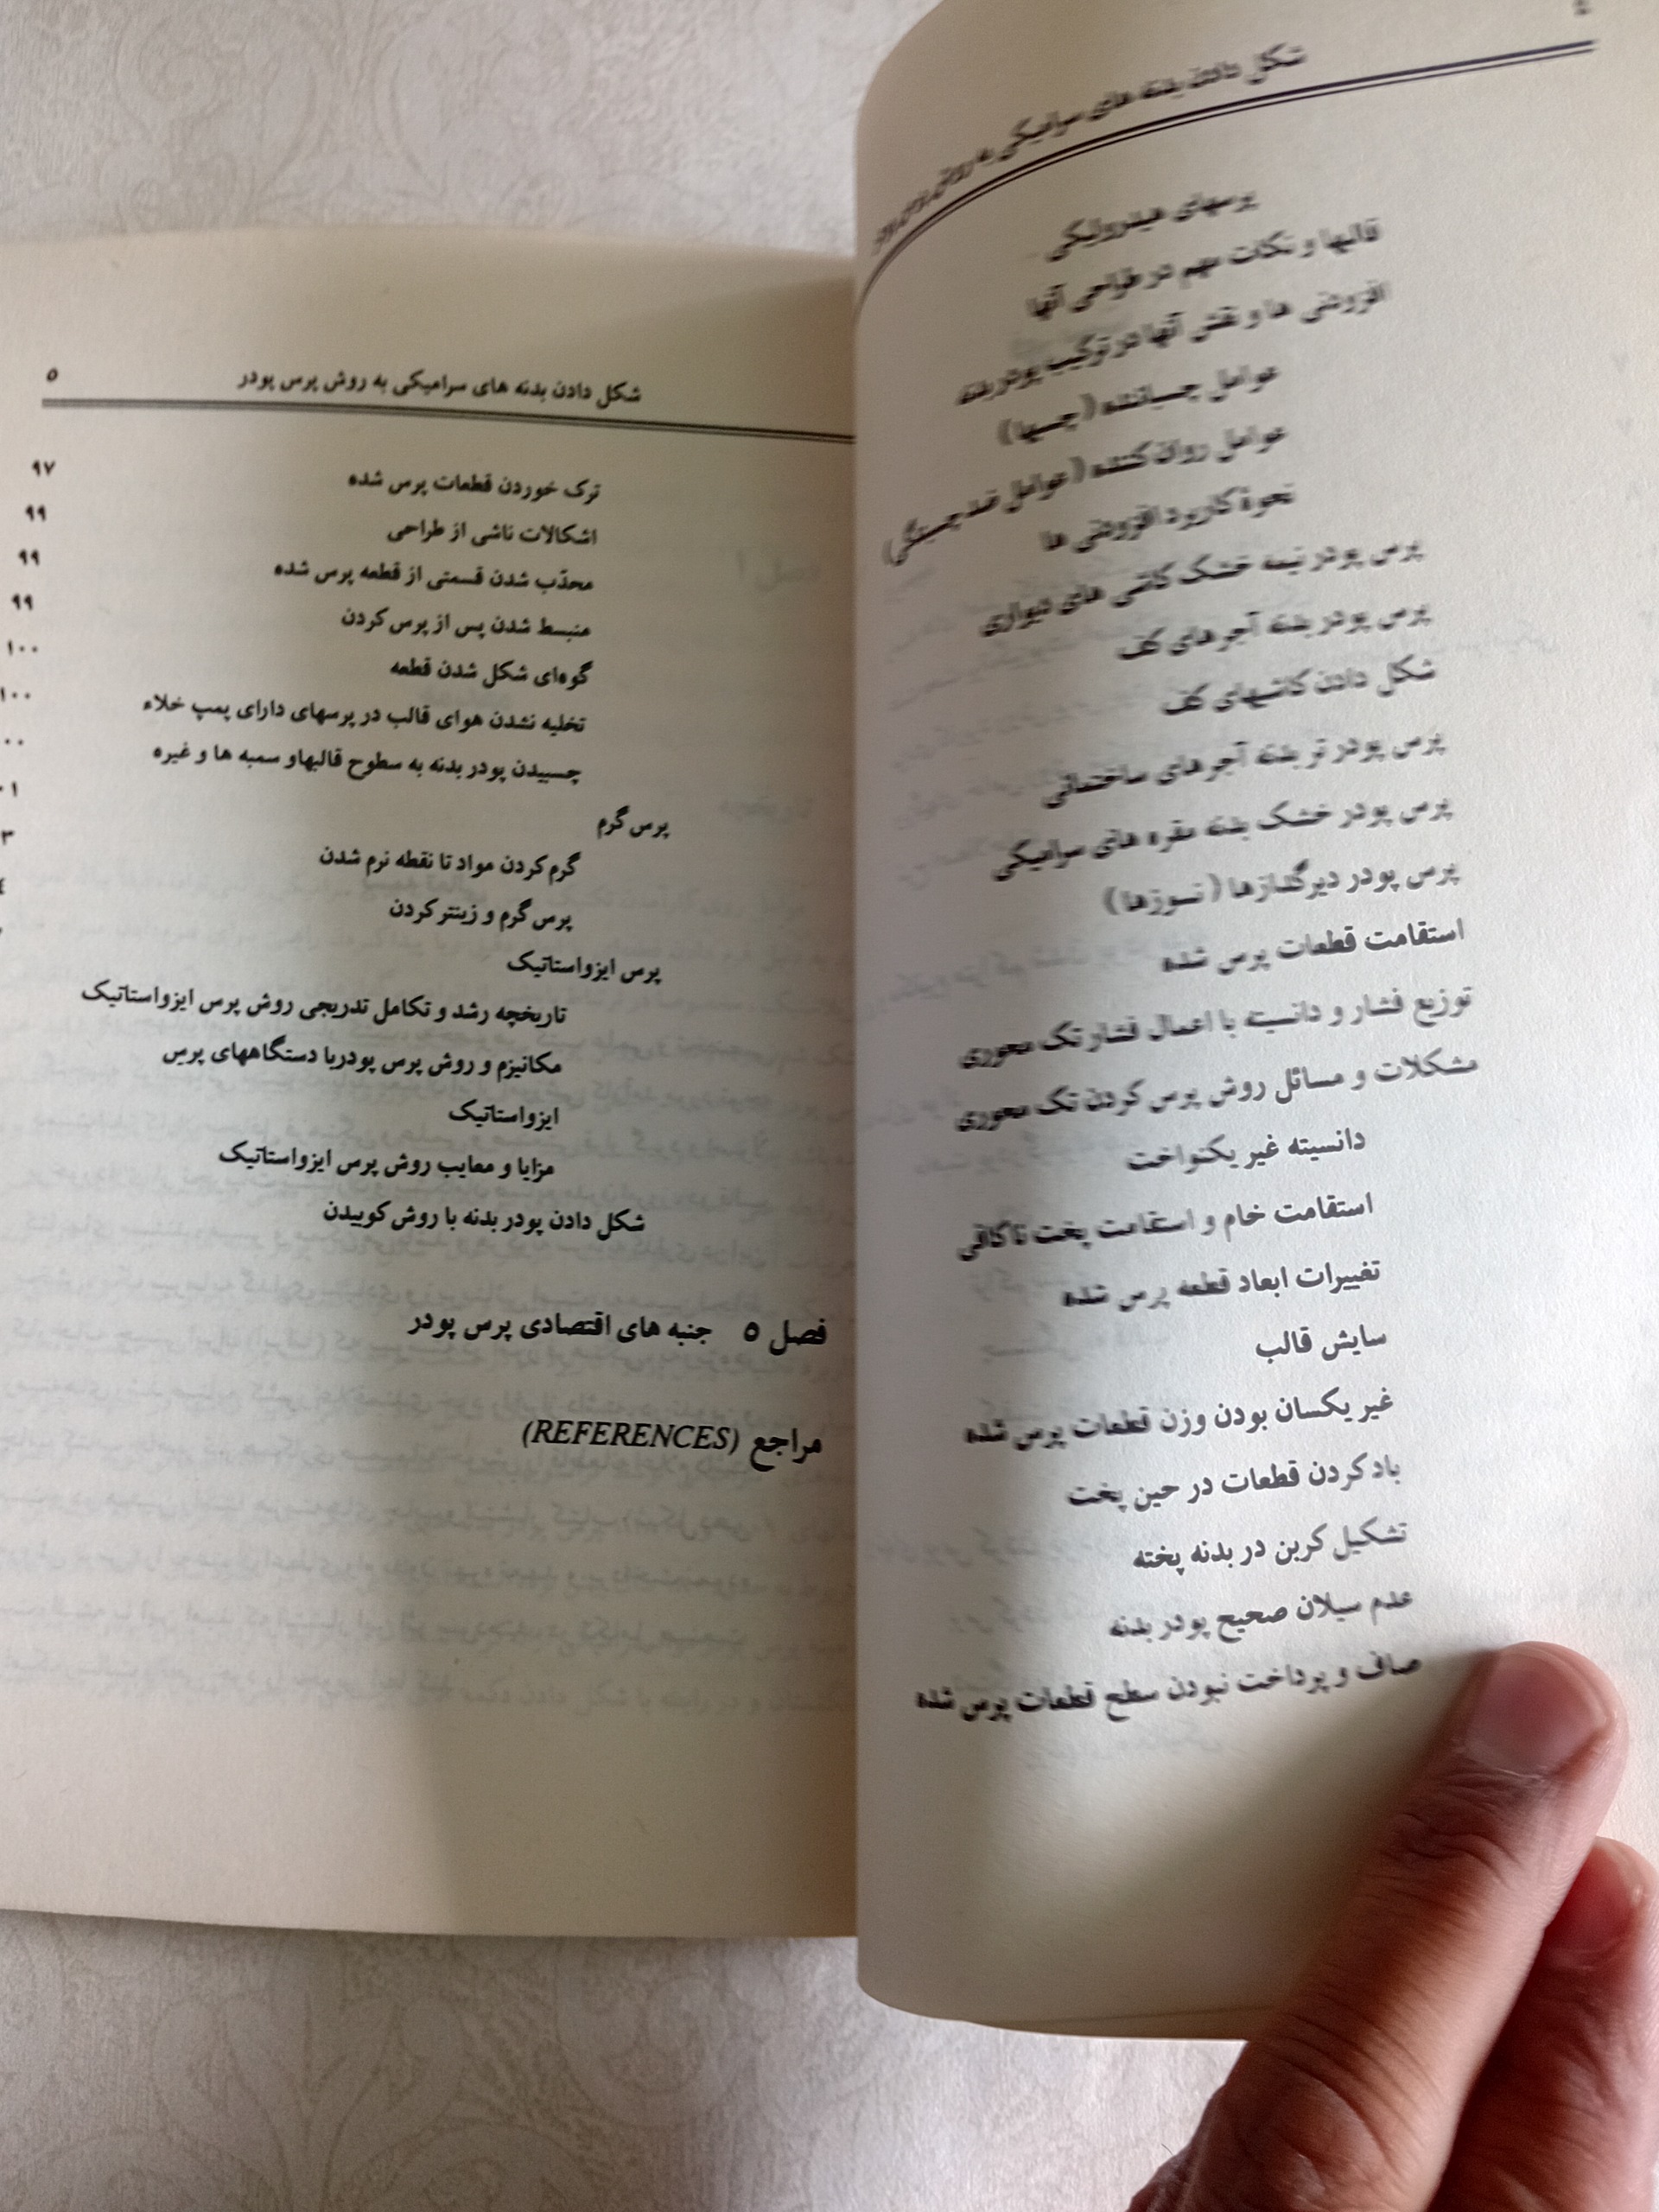 شکل دادن بدنه های سرامیکی به روش
پرسهای هیدرولیکی
قالبها و نکات مهم در طراحی آنها
افزودنی ها و نقش آنها در ترکیب پودر بدنه
عوامل چسباننده (چسبها)
عوامل روان کننده (عوامل ضد چسبندگی)
نحوۀ کاربرد افزودنی ها
پرس پودر نیمه خشک کاشی های دیواری
پرس پودر بدنه آجرهای کف
شکل دادن کاشیهای کف
پرس پودر تر بدنه آجرهای ساختمانی
پرس پودر خشک بدنه مقره های سرامیکی
پرس پودر دیرگدازها (نسوزها)
استقامت قطعات پرس شده
توزیع فشار و دانسیته با اعمال فشار تک محوری
مشکلات و مسائل روش پرس کردن تک محوری
دانسیته غیر یکنواخت
استقامت خام و استقامت پخت ناکافی
تغییرات ابعاد قطعه پرس شده
سایش قالب
غیر یکسان بودن وزن قطعات پرس شده
باد کردن قطعات در حین پخت
تشکیل کربن در بدنه پخته
عدم سیلان صحیح پودر بدنه
صاف و پرداخت نبودن سطح قطعات پرس شده
شکل دادن بدنه های سرامیکی به روش پرس پودر ۵
ترک خوردن قطعات پرس شده ۹۷
اشکالات ناشی از طراحی ۹۹
محدّب شدن قسمتی از قطعه پرس شده ۹۹
منبسط شدن پس از پرس کردن ۹۹
گوه‌ای شکل شدن قطعه ۱۰۰
تخلیه نشدن هوای قالب در پرسهای دارای پمپ خلاء ۱۰۰
چسبیدن پودر بدنه به سطوح قالبهاو سمبه ها و غیره
پرس گرم
گرم کردن مواد تا نقطه نرم شدن
پرس گرم و زینتر کردن
پرس ایزواستاتیک
تاریخچه رشد و تکامل تدریجی روش پرس ایزواستاتیک
مکانیزم و روش پرس پودربا دستگاههای پرس
ایزواستاتیک
مزایا و معایب روش پرس ایزواستاتیک
شکل دادن پودر بدنه با روش کوبیدن
فصل ۵ جنبه های اقتصادی پرس پودر
مراجع (REFERENCES)